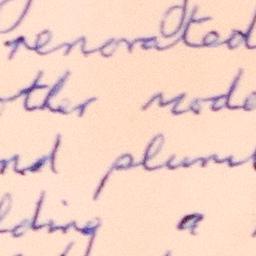 renovated
other mode
and plum
lding a